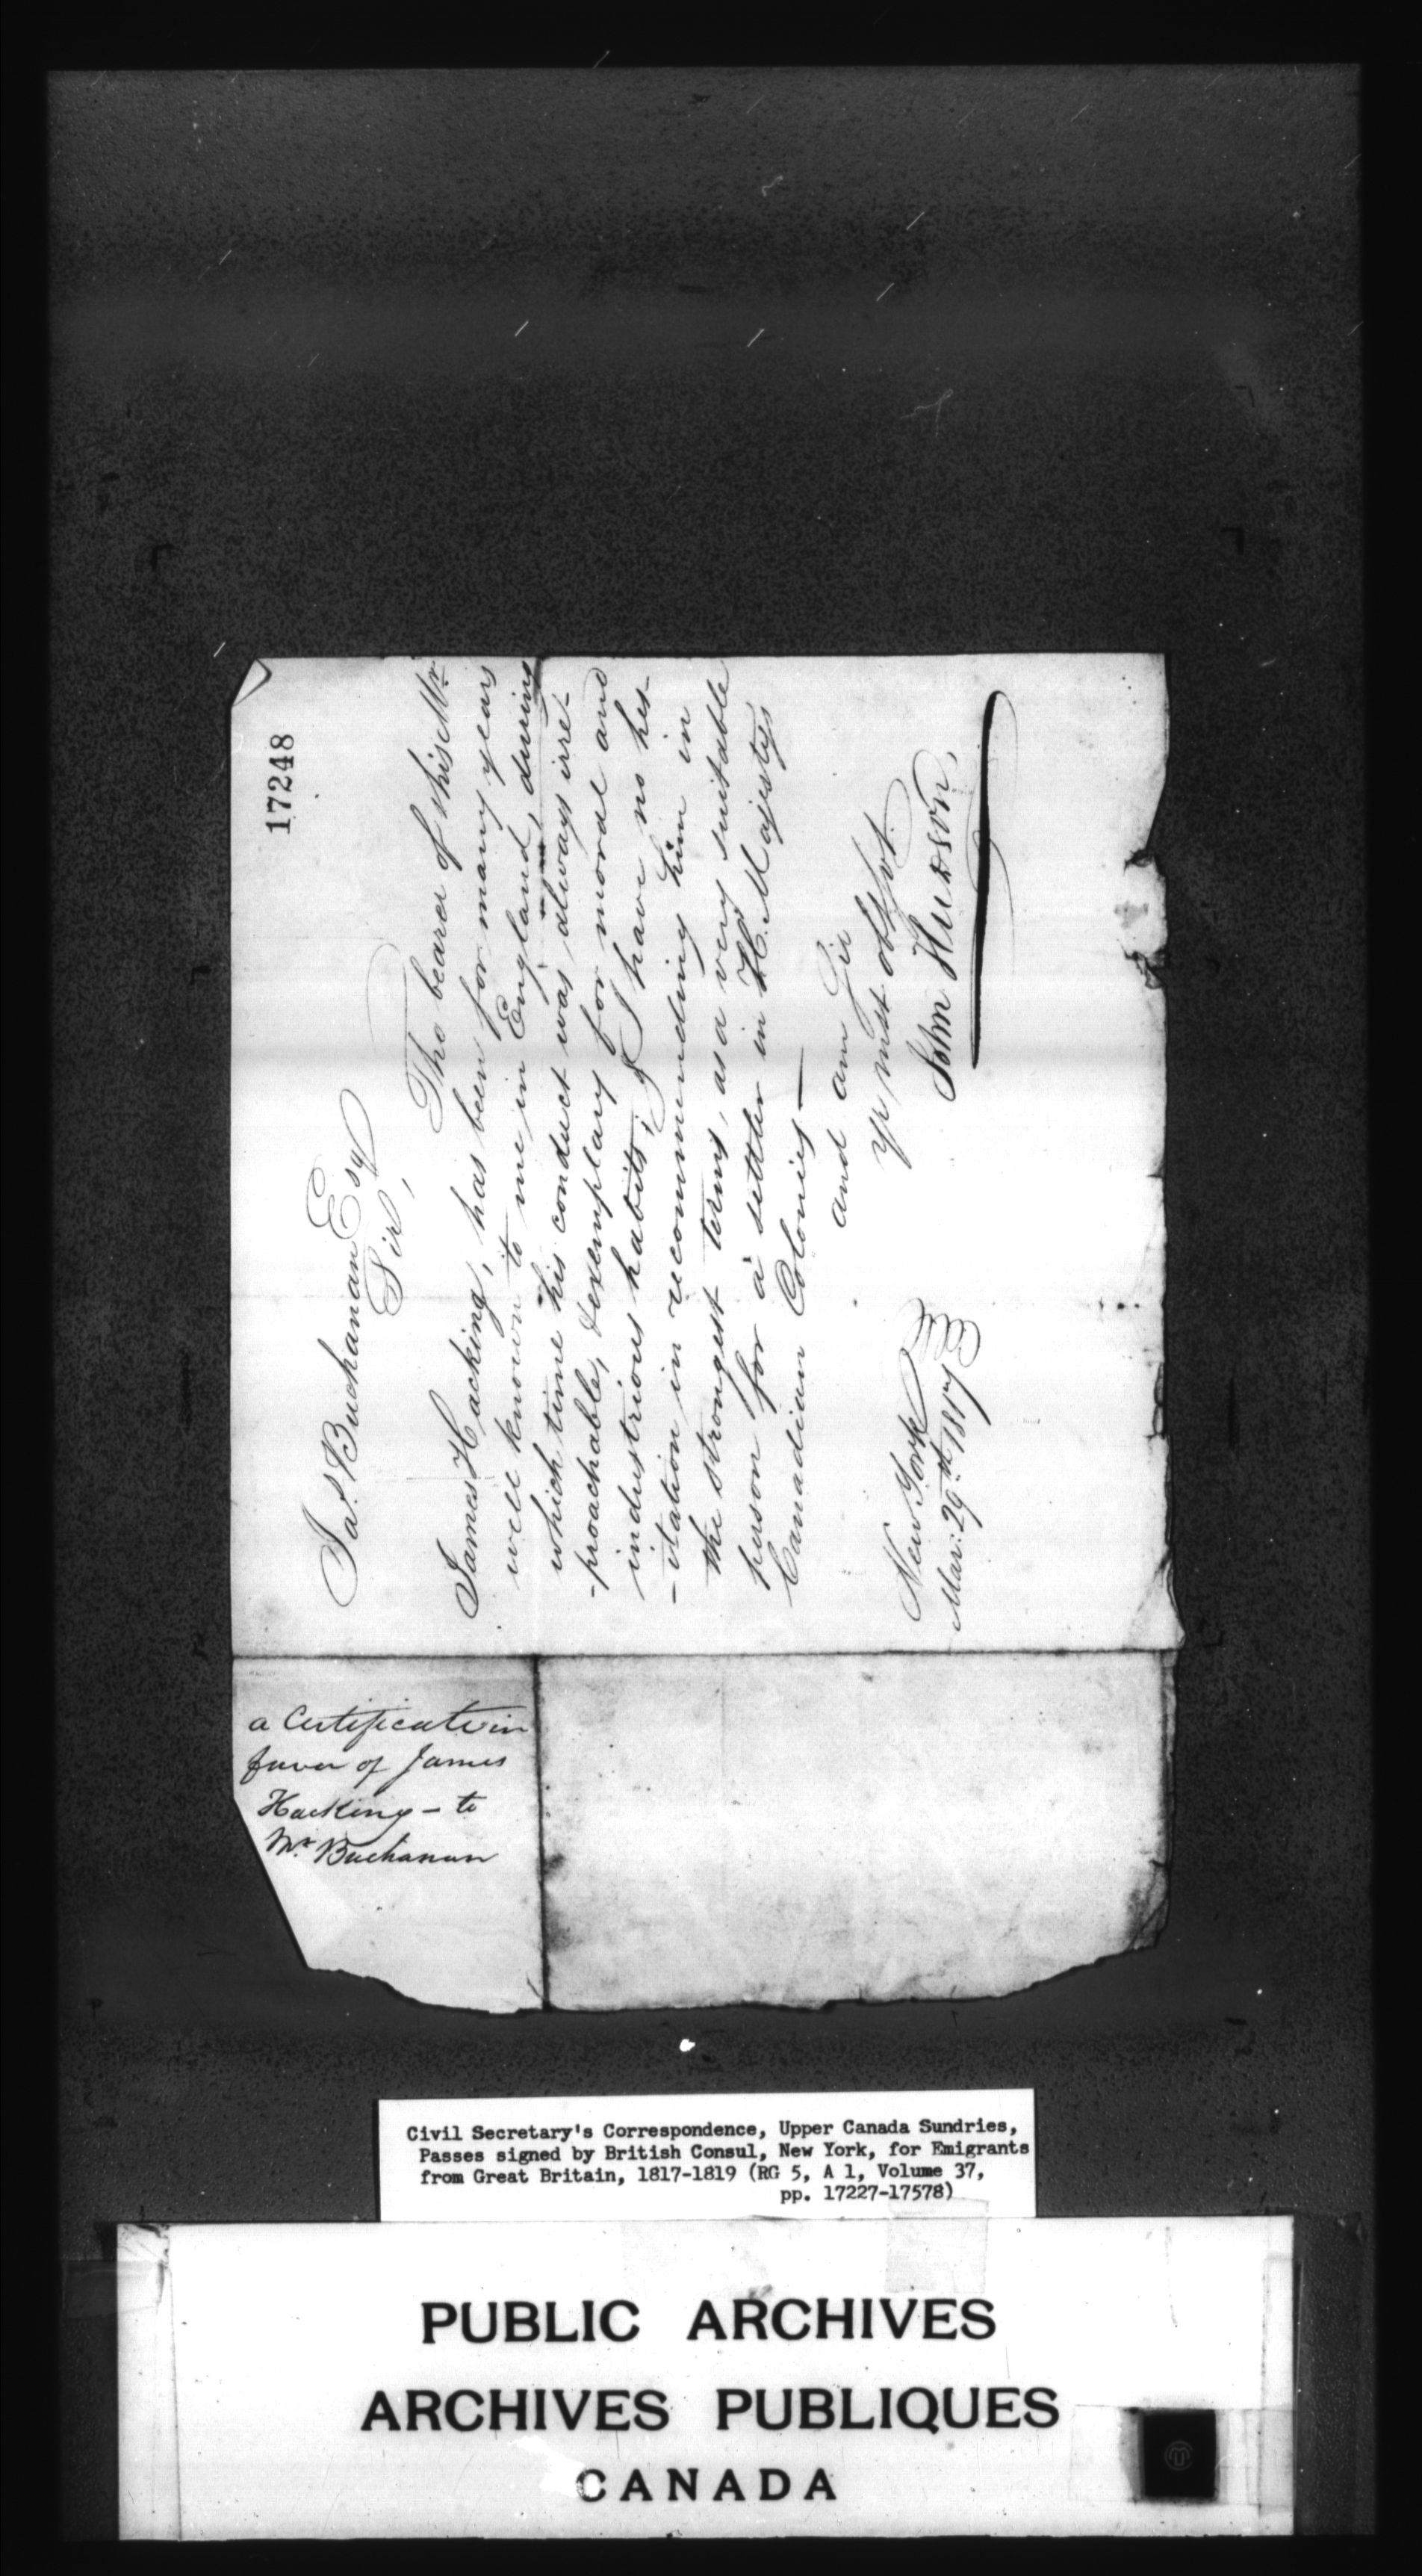 17248
Jas. Buchanan Esq
Sir,
The bearer of this Mr.
James Hacking, has been for many years
well known to me in England, during
which time his conduct was always irre-
-proachable, & exemplary for moral and
industrious habits; I have no hes-
-itation in recommending him in
the strongest terms, as a very suitable
person for a settler in H. Majestys
Canadian Colonies —
and am Sir
Yr most obt svt.
John Hudson,
New York
Mar: 29th 1817
a Certificate in
favor of James
Hacking - to
Mr. Buchanan
Civil Secretary's Correspondence, Upper Canada Sundries,
Passes signed by British Consul, New York, for Emigrants
from Great Britain, 1817-1819 (RG 5, A 1, Volume 37,
pp. 17227-17578)
PUBLIC ARCHIVES
ARCHIVES PUBLIQUES
CANADA